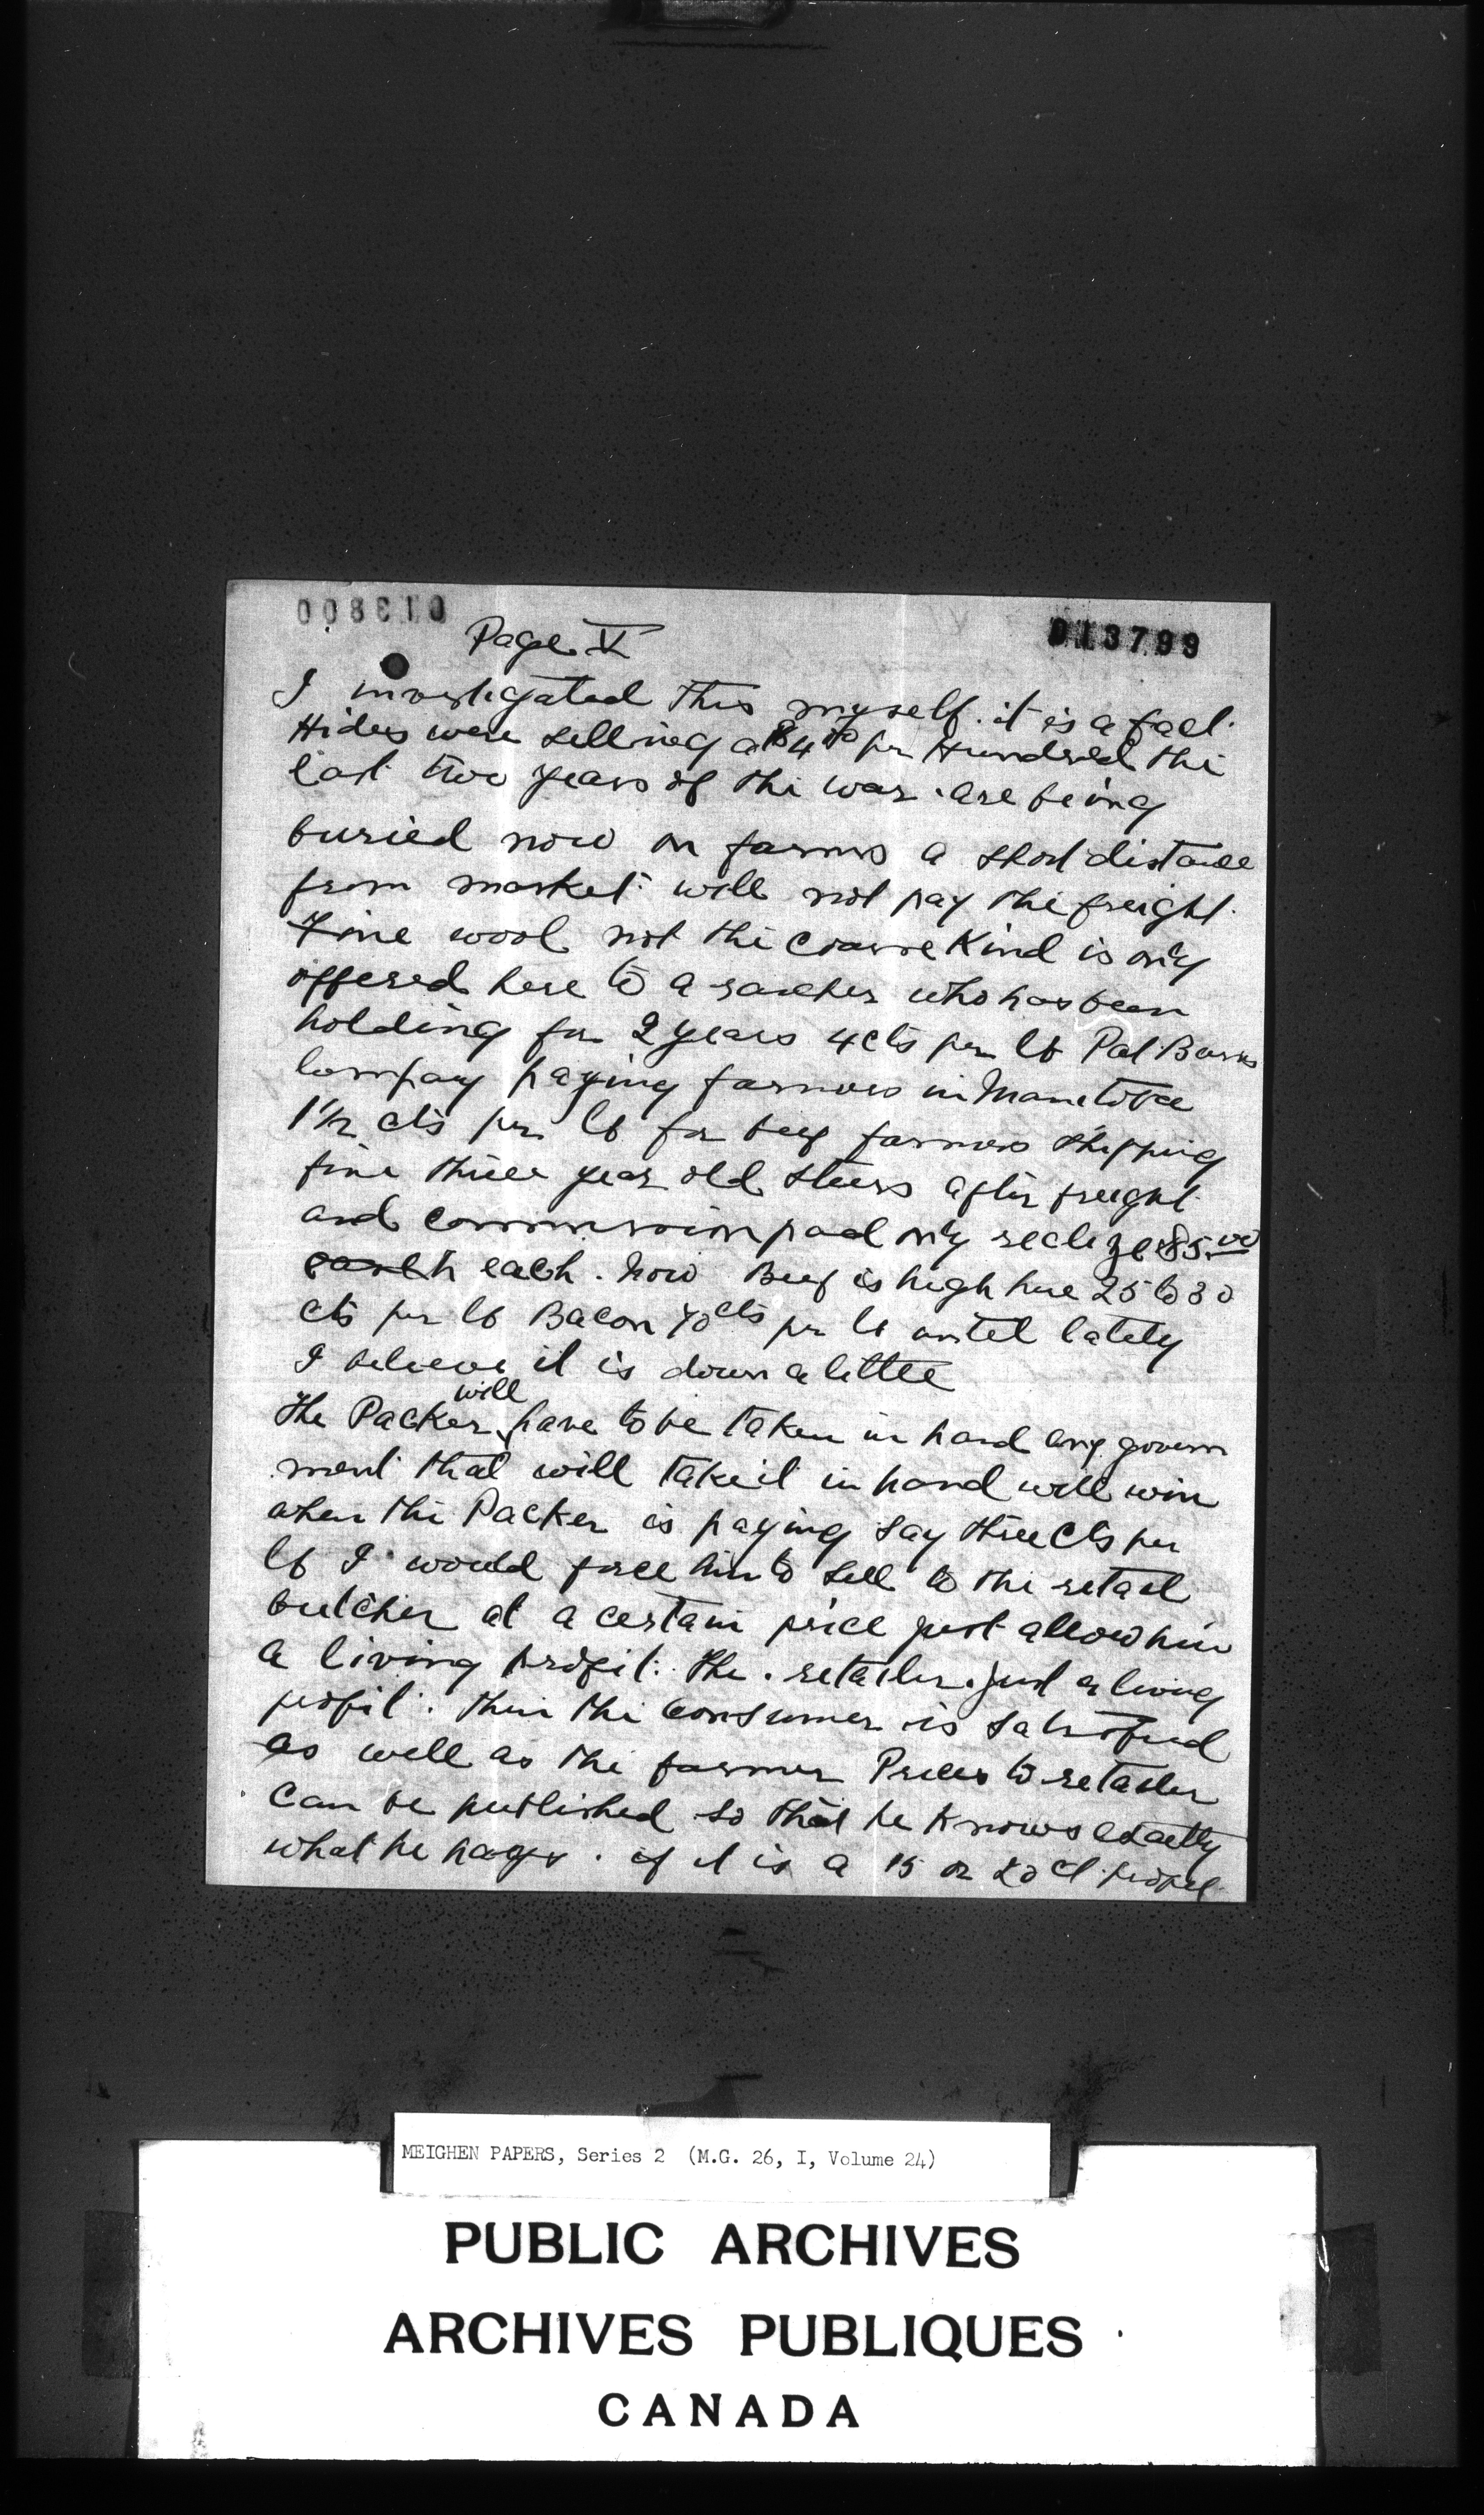 013799
Page V
I investigated this myself. it is a fact.
Hides were selling at $4 per Hundred the
last two years of the war. are being
buried now on farms a short distance
from market will not pay the freight.
Fine wool not the coarse Kind is only
offered here to a rancher who has been
holding for 2 years 4 cts per lb Pat Burns
Company paying farmers in Manitoba
1½ cts per lb for beef farmers shipping
fine three year old steers after freight
and commission paid only realize $5.00
each. now Beef is high here 25 to 30
cts per lb Bacon 70 cts per lb until lately
I believe it is down a little
The Packer will have to be taken in hand any govern
ment that will take it in hand will win
when the Packer is paying say three cts per
lb I would force him to sell to the retail
butcher at a certain price just allow him
a living profit. the. retailer. just a living
profit. then the consumer is satisfied
as well as the farmer Prices to retailer
can be published so that he knows exactly
what he pays. if it is a 15 or 20 ct profit
MEIGHEN PAPERS, Series 2 (M.G. 26, I, Volume 24)
PUBLIC ARCHIVES
ARCHIVES PUBLIQUES
CANADA